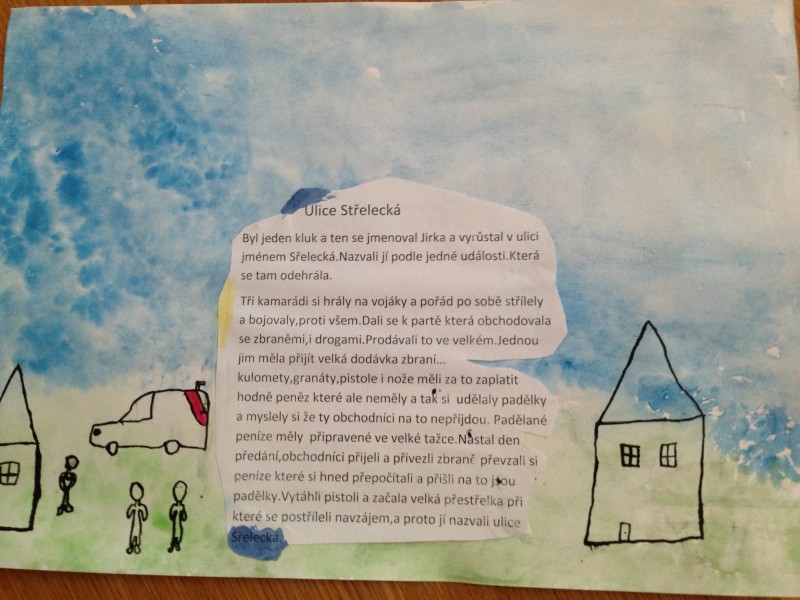 Ulice Střelecká
Byl jeden kluk a ten se jmenoval Jirka a vyrůstal v ulici
jménem Sřelecká.Nazvali jí podle jedné události.Která
se tam odehrála.
Tři kamarádi si hrály na vojáky a pořád po sobě střílely
a bojovaly,proti všem.Dali se k partě která obchodovala
se zbraněmi,i drogami.Prodávali to ve velkém.Jednou
jim měla přijít velká dodávka zbraní...
kulomety,granáty,pistole i nože měli za to zaplatit
hodně peněz které ale neměly a tak si udělaly padělky
a myslely si že ty obchodníci na to nepříjdou. Padělané
peníze měly připravené ve velké tažce.Nastal den
předání,obchodníci přijeli a přivezli zbraně převzali si
peníze které si hned přepočítali a přišli na to jsou
padělky.Vytáhli pistoli a začala velká přestřelka při
které se postříleli navzájem,a proto jí nazvali ulice
Sřelecká.